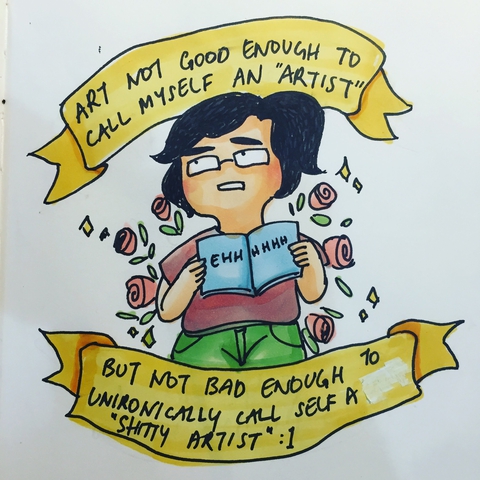 ART NOT GOOD ENOUGH TO
CALL MYSELF AN "ARTIST"
EHH HHHH
BUT NOT BAD ENOUGH TO
UNIRONICALLY CALL SELF A
"SHITTY ARTIST" :|